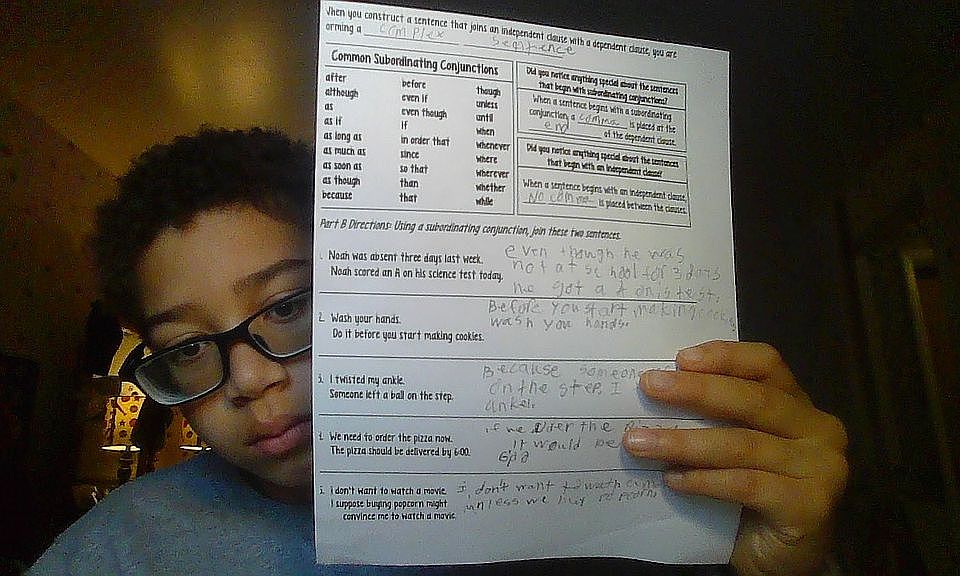 When you construct a sentence that joins an independent clause with a dependent clause, you are
orming a complex sentence
Common Subordinating Conjunctions
after
although
as
as if
as long as
as much as
as soon as
as though
because
before
even if
even though
if
in order that
since
so that
than
that
though
unless
until
when
whenever
where
wherever
whether
while
Did you notice anything special about the sentences
that begin with subordinating conjunctions?
When a sentence begins with a subordinating
conjunction, a comma is placed at the
end of the dependent clause.
Did you notice anything special about the sentences
that begin with an independent clause?
When a sentence begins with an independent clause,
No comma is placed between the clauses.
Part B Directions: Using a subordinating conjunction, join these two sentences.
Noah was absent three days last week.
Noah scored an A on his science test today.
even though he was
not at school for 3 days
he got a A on is test.
2. Wash your hands.
Do it before you start making cookies.
Before you start making
wash you hands.
3. I twisted my ankle.
Someone left a ball on the step.
Because someone
on the step, I
ankel.
We need to order the pizza now.
The pizza should be delivered by 6:00.
if we order the
it would be
I don't want to watch a movie.
I suppose buying popcorn might
convince me to watch a movie.
i don't want to
unless we